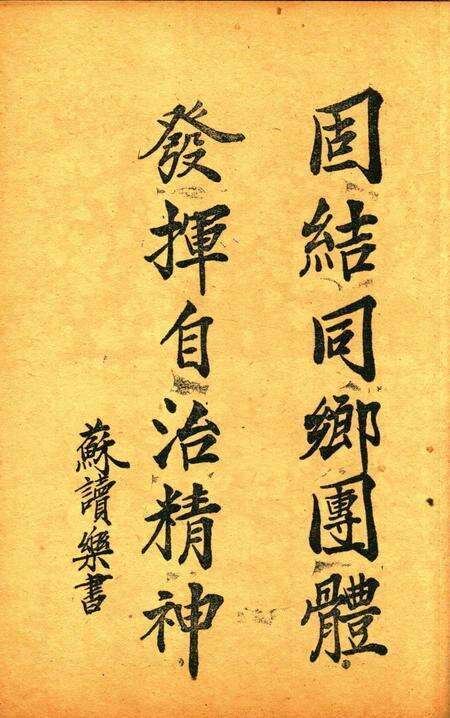 固結同鄉團體
發揮自治精神
蘇讀樂書